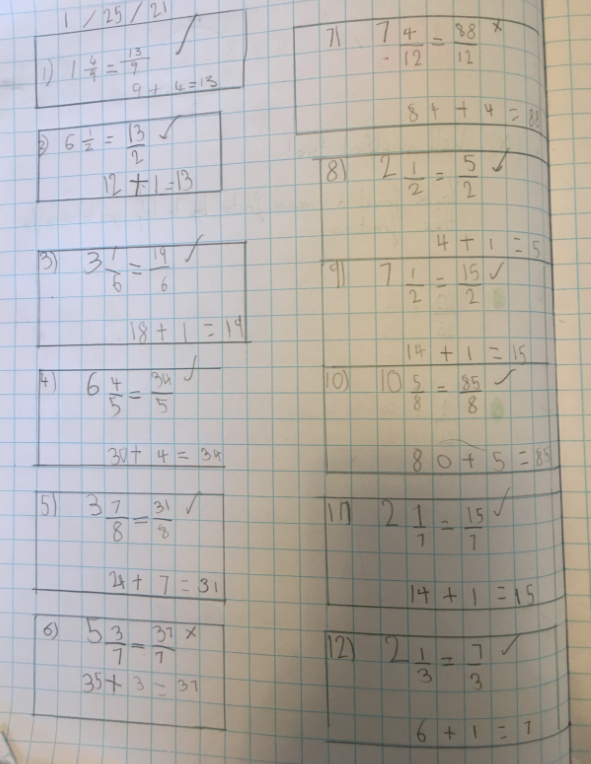 1 / 25 / 21
1) 1 4/9 = 13/9 ✓
9 + 4 = 13
2) 6 1/2 = 13/2 ✓
12 + 1 = 13
3) 3 1/6 = 19/6 ✓
18 + 1 = 19
4) 6 4/5 = 34/5 ✓
30 + 4 = 34
5) 3 7/8 = 31/8 ✓
24 + 7 = 31
6) 5 3/7 = 37/7 ×
35 + 3 = 37
7) 7 4/12 = 88/12 ×
84 + 4 = 88
8) 2 1/2 = 5/2 ✓
4 + 1 = 5
9) 7 1/2 = 15/2 ✓
14 + 1 = 15
10) 10 5/8 = 85/8 ✓
80 + 5 = 85
11) 2 1/7 = 15/7 ✓
14 + 1 = 15
12) 2 1/3 = 7/3 ✓
6 + 1 = 7